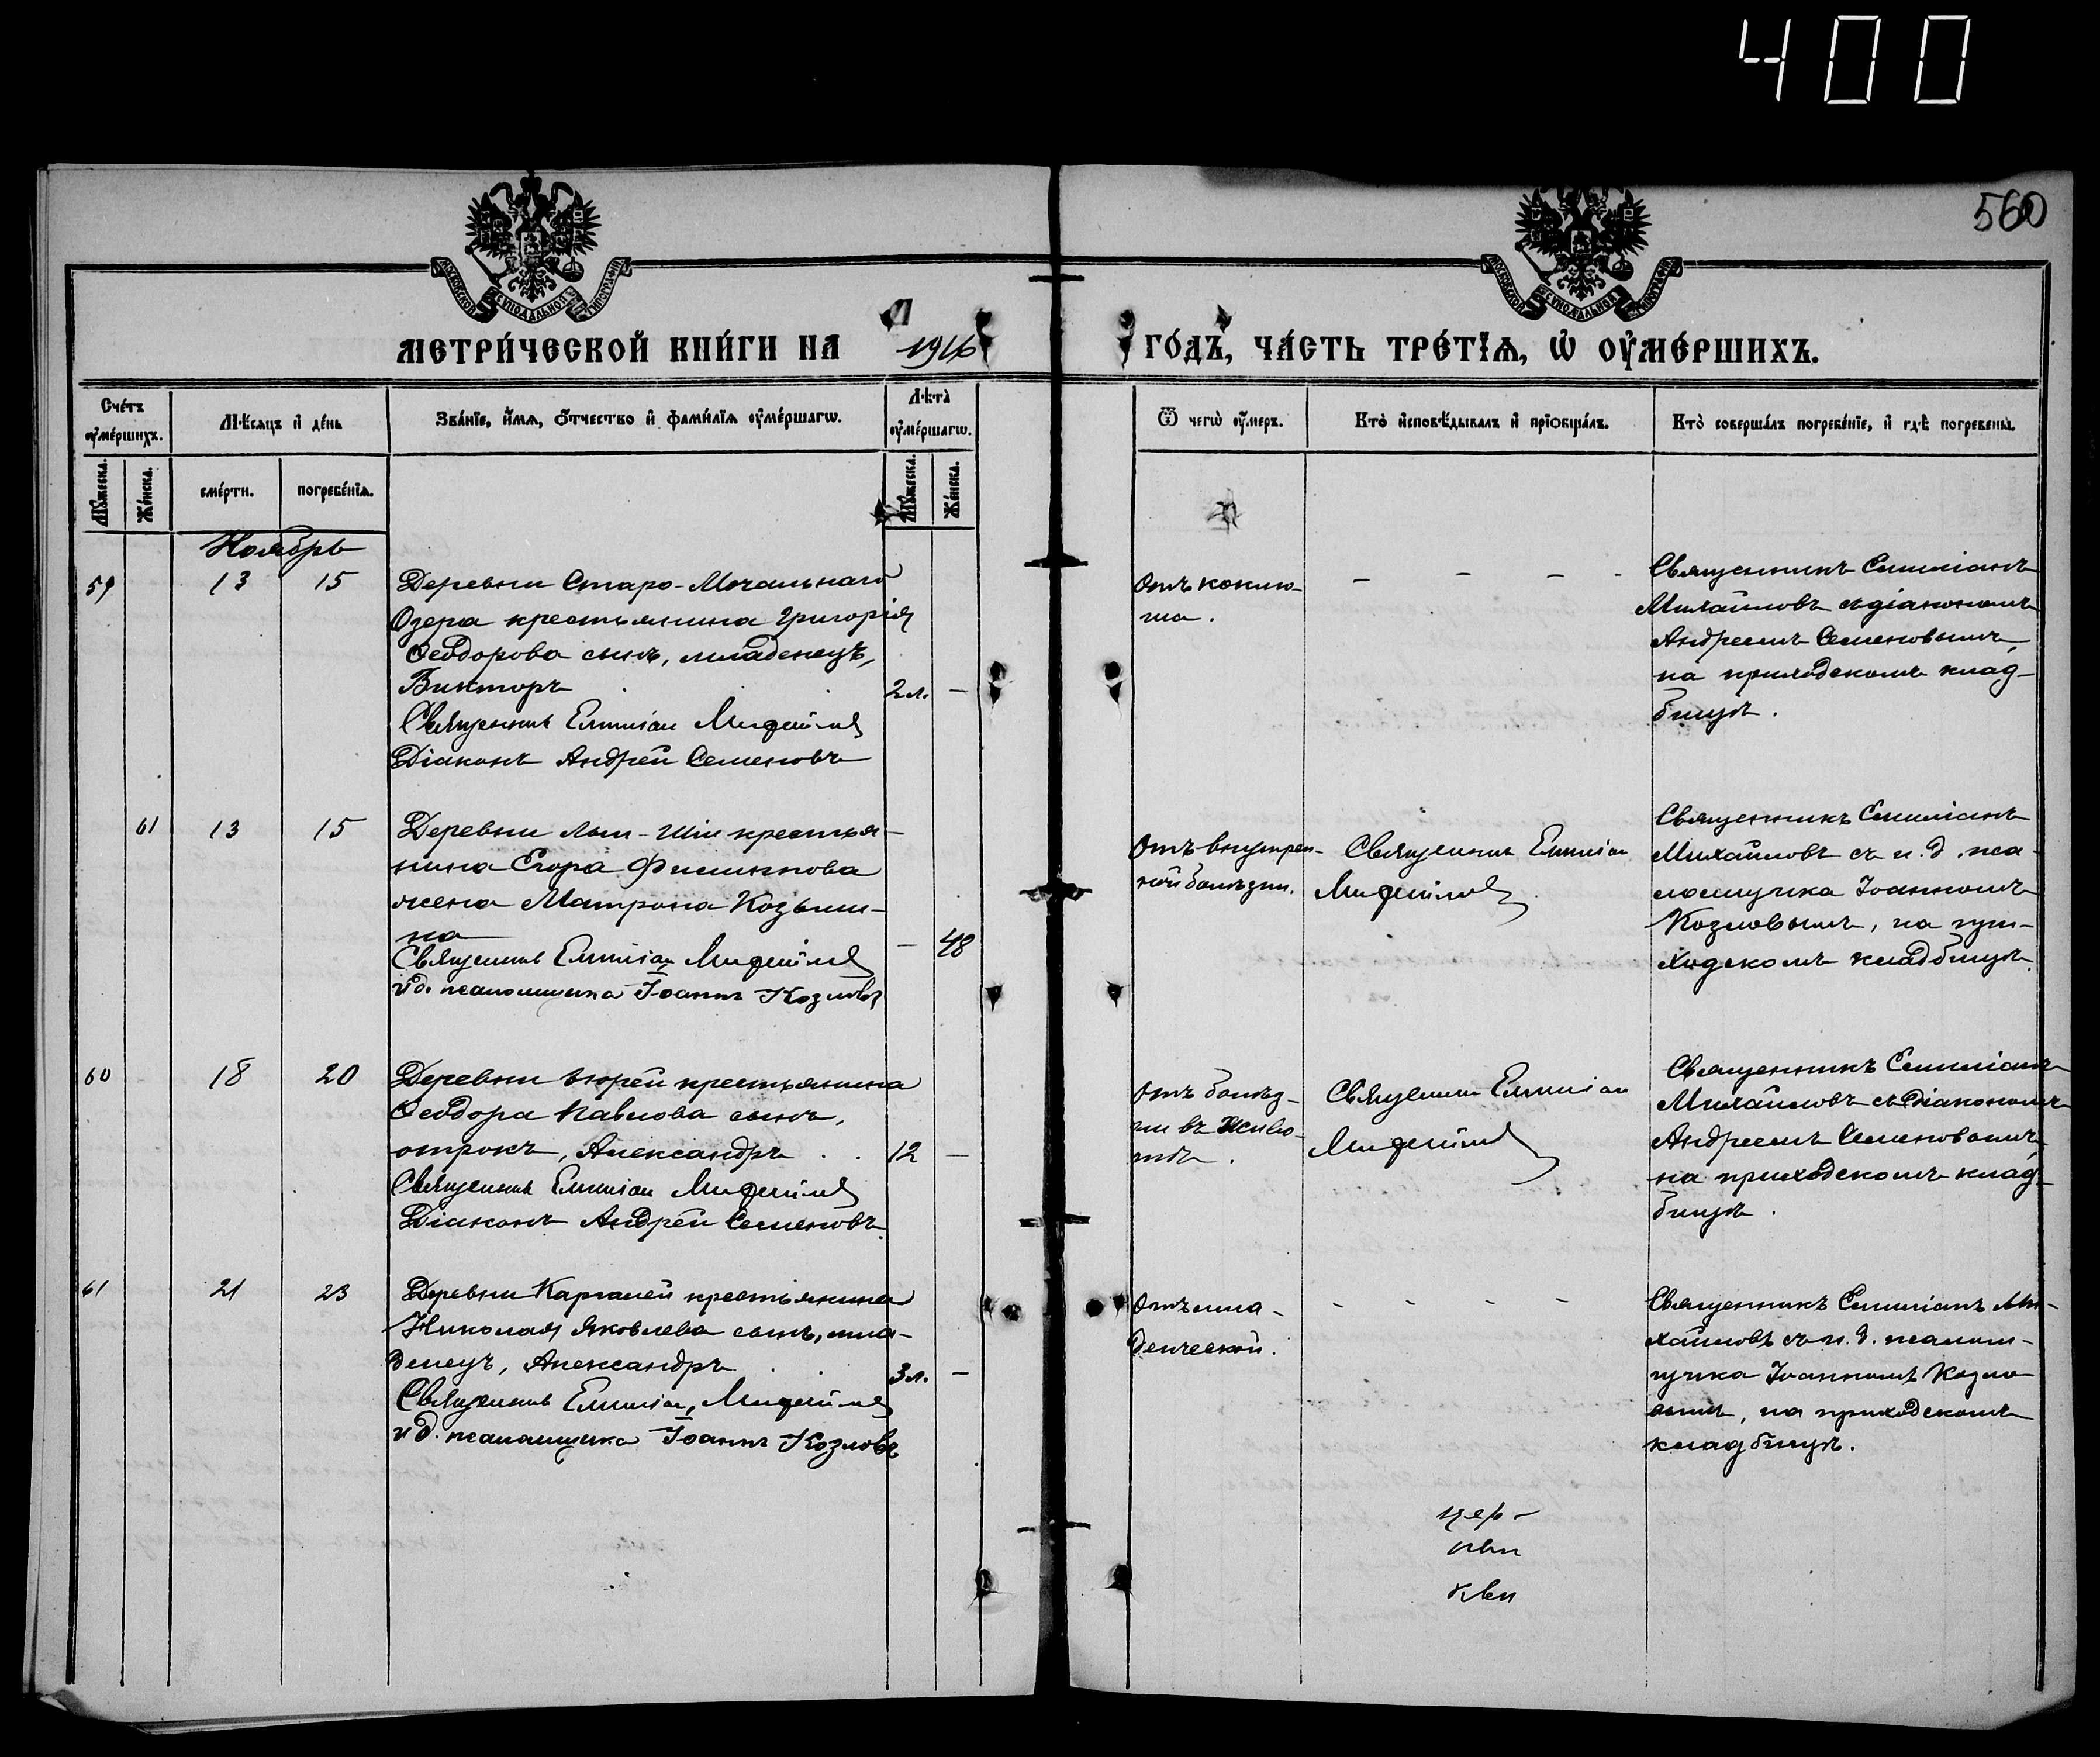 400
560
МОСКОВСКОЙ СѴНОДАЛЬНОЙ ТИПОГРАФІИ
МОСКОВСКОЙ СѴНОДАЛЬНОЙ ТИПОГРАФІИ
МЕТРИ́ЧЕСКОЙ КНИ́ГИ НА 1916 ГО́ДЪ, ЧА́СТЬ ТРЕ́ТЇѦ, Ѡ҆ ОУ҆МЕ́РШИХЪ.
Сче́тъ оу҆ме́ршихъ.
Мѣ́сяцъ и҆ де́нь
Зва́нїе, и҆́мѧ, ѻ҆́тчество и҆ фами́лїѧ оу҆ме́ршагѡ.
Лѣ́та оу҆ме́ршагѡ.
Ѿ чегѡ̀ оу҆́меръ.
Кто̀ и҆сповѣ́дывалъ и҆ прїѡбща́лъ.
Кто̀ соверша́лъ погребе́нїе, и҆ гдѣ̀ погребены̀.
Мꙋ́жеска.
Же́нска.
сме́рти.
погребе́нїѧ.
Мꙋ́жеска.
Же́нска.
Ноябрь
59 13 15
Деревни Старо-Мочальнаго
Озера крестьянина Григорія
Ѳеодорова сынъ, младенецъ,
Викторъ 2 л. —
Священникъ Емиліан Михайловъ
Діаконъ Андрей Семеновъ
Отъ коклю-
ша.
— — — -
Священникъ Емиліанъ
Михайловъ съ діакономъ
Андреемъ Семеновымъ,
на приходскомъ клад-
бищѣ.
61 13 15
Деревни крестья-
нина Егора Филиппова
жена Матрона Козьми-
на — 48
Священникъ Емиліан Михайловъ
и д. псаломщика Іоаннъ Козловъ
Отъ внутрен-
ней болѣзни.
Священникъ Емиліан
Михайловъ
Священникъ Емиліанъ
Михайловъ съ и. д. пса-
ломщика Іоанномъ
Козловымъ, на при-
ходскомъ кладбищѣ.
60 18 20
Деревни крестьянина
Ѳеодора Павлова сынъ,
отрокъ, Александръ . . 12 —
Священникъ Емиліан Михайловъ
Діаконъ Андрей Семеновъ.
Отъ болѣз-
ни въ живо-
тѣ.
Священникъ Емиліан
Михайловъ
Священникъ Емиліанъ
Михайловъ съ діакономъ
Андреемъ Семеновымъ,
на приходскомъ клад-
бищѣ.
61 21 23
Деревни Каргалей крестьянина
Николая Яковлева сынъ, мла-
денецъ, Александръ 3 л. —
Священникъ Емиліан Михайловъ
и д. псаломщика Іоаннъ Козловъ
Отъ мла-
денческой.
- - - -
Священникъ Емиліанъ Ми-
хайловъ съ и. д. псалом-
щика Іоанномъ Козло-
вымъ, на приходскомъ
кладбищѣ.
цер-
кви
кви